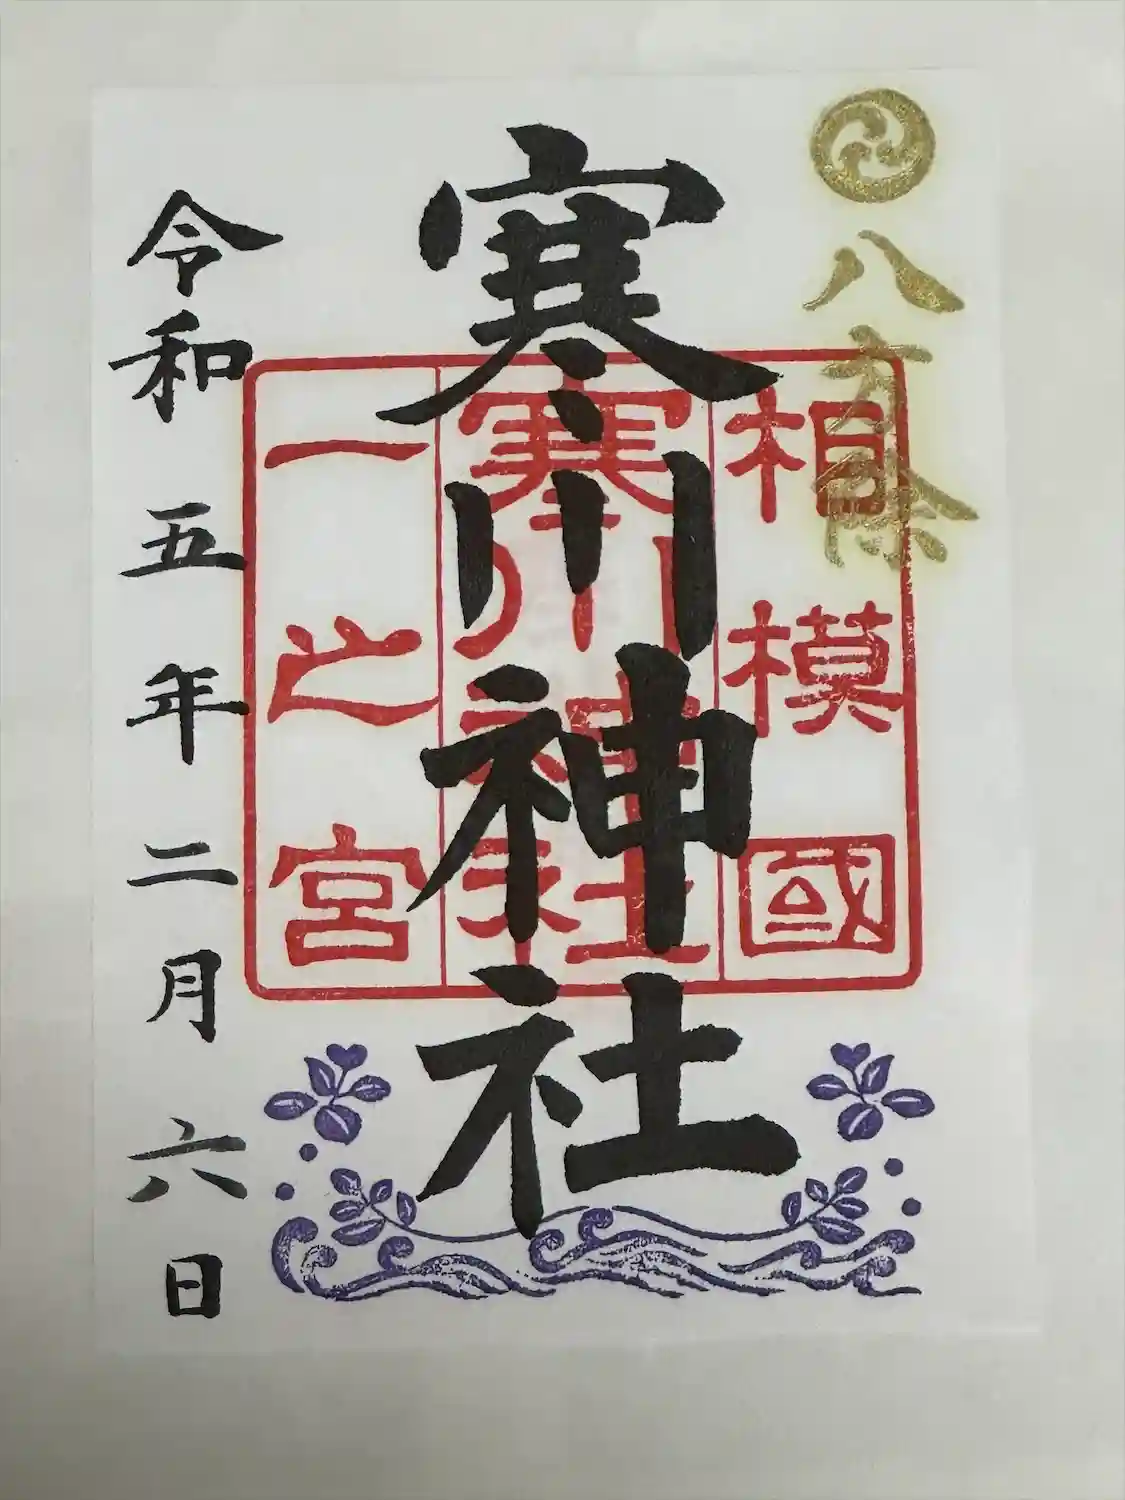 八方除
寒川神社
相模國
寒川神社
一之宮
令和五年二月六日